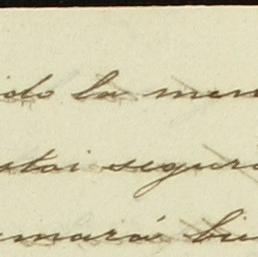 ido la men
stai segur
amará bie